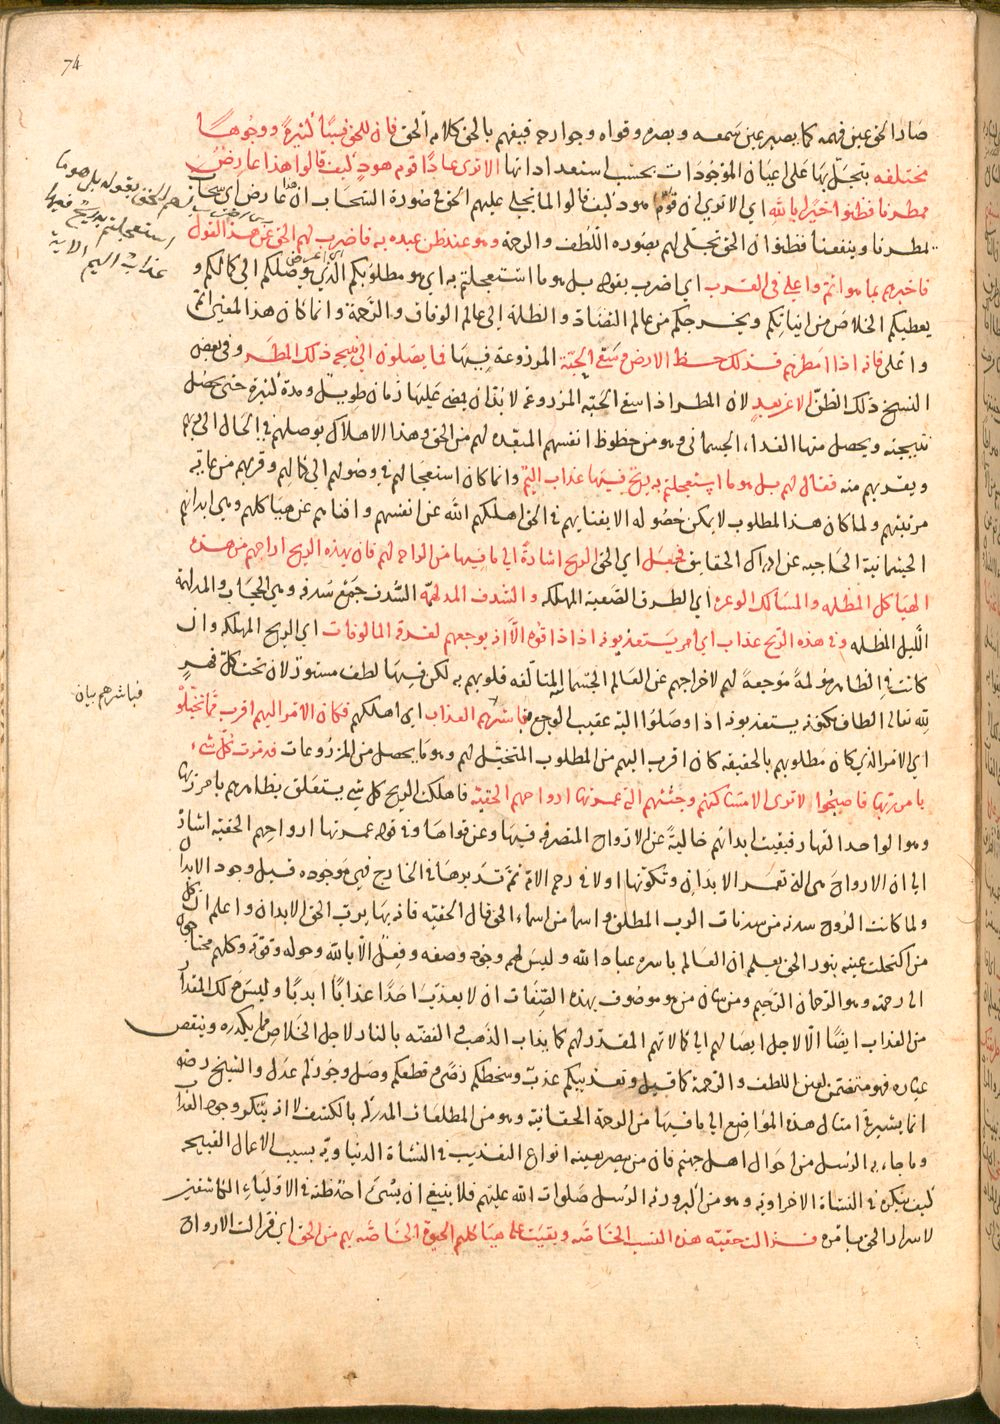 74
صار الحق عين فهمه كما يصير عين سمعه وبصره وقواه وجوارحه فيفهم بالحق كلام الحق فان للحق نسبًا كثيرةً ووجوهًا
مختلفه يتجلى بها على اعيان الموجودات بحسب استعداداتها الا ترى عادًا قوم هودٍ كيف قالوا هذا عارض
ممطرنا فظنوا خيرًا بالله اي الا ترى ان قوم هود كيف قالوا لما تجلى عليهم الحق في صورة السحاب ان هذا عارض اي سحاب
يمطرنا وينفعنا فظنوا ان الحق تجلى لهم بصوره اللطف والرحمة وهو عند ظن عبده به فاضرب لهم الحق عن هذا القول
فاخبرهم بما هو اتم واعلى في القرب اي اضرب بقوله بل هو ما استعجلتم به اي هو مطلوبكم الذي يوصلكم الى كمالكم و
يعطيكم الخلاص من انياتكم ويخرجكم من عالم التضاد والظلمة الى عالم الوفاق والرحمة وانما كان هذا المعنى اتم
واعلى فانه اذا امطرهم فذلك حظ الارض وسقي الحبة المزروعة فيها فما يصلون الى نتيجة ذلك المطر وفي بعض
النسخ ذلك الظن الا عن بعدٍ لان المطر اذا سقى الحبة المزروعة لا بد ان يمضي عليها زمان طويل ومدة كثيرة حتى يحصل
نتيجته ويحصل منها الغداء الجسماني وهو من حظوظ انفسهم المبعده لهم من الحق وهذا الاهلاك يوصلهم في الحال الى ربهم
ويقربهم منه فقال لهم بل هو ما استعجلتم به ريح فيها عذاب اليم وانما كان استعجالهم في وصولهم الى كمالهم وقربهم من غاية
مرتبتهم ولما كان هذا المطلوب لا يمكن حصوله الا بفنايهم في الحق اهلكهم الله عن انفسهم وافناهم عن هياكلهم وهي ابدانهم
الجسمانية الحاجبه عن ادراك الحقايق فجعل اي الحق الريح اشارةً الى ما فيها من الراحه لهم فان بهذه الريح اراحهم من هذه
الهياكل المظلمه والمسالك الوعره اي الطرق الصعبة المهلكه والسدف المدلهمة السدف جمع سدفه وهي الحجاب والمدلهمة
الليل المظلمه وفي هذه الريح عذاب اي امر يستعذبونه اذا ذاقوه الا انه يوجعهم لفرقة المالوفات اي الريح المهلكه وان
كانت في الظاهر مؤلمةً موجعةً لهم لاخراجهم عن العالم الجسماني المتالفه قلوبهم به لكن فيها لطف مستور لان تحت كل قهرٍ
لله تعالى الطاف مكنونه يستعذبونه اذا وصلوا اليه عقيب الوجع فباشرهم العذاب اي اهلكهم فكان الامر اليهم اقرب مما تخيلوه
اي الامر الذي كان مطلوبهم بالحقيقه كان اقرب اليهم من المطلوب المتخيل لهم وهو ما يحصل من المزروعات فدمرت كل شيء
بامر ربها فاصبحوا لا ترى الا مساكنهم وجثثهم التي عمرتها ارواحهم الحقية فاهلكت الريح كل شي يتعلق بظاهرهم بامر ربها
وهو الواحد القهار فبقيت ابدانهم خاليةً عن الارواح المتصرفه فيها وعن قواها وفي قوله عمرتها ارواحهم الحقية اشارة
الى ان الارواح هي التي تعمر الابدان وتكونها اولا في رحم الام ثم تدبرها في الخارج فهي موجوده قبل وجود الابدان
ولما كانت الروح سدنه من سدنات الرب المطلق واسما من اسماء الحق قال الحقيه فانه بها يرب الحق الابدان واعلم ان كل
من اكتحلت عينه بنور الحق يعلم ان العالم باسره عباد الله وليس لهم وجود وصفه وفعل الا بالله وحوله وقوته وكلهم محتاجون
الى رحمته وهو الرحمان الرحيم ومن شان من هو موصوف بهذه الصفات ان لا يعذب احدًا عذابًا ابديًا وليس ذلك المقدار
من العذاب ايضًا الا لاجل ايصالهم الى كمالاتهم المقدر لهم كما يذاب الذهب والفضه بالنار لاجل الخلاص مما يكدره وينقص
عياره فهو متضمن لعين اللطف والرحمة كما قيل وتعذيبكم عذب وسخطكم رضى وقطعكم وصل وجوركم عدل والشيخ رضه
انما يشير في امثال هذه المواضع الى ما فيها من الرحمة الحقانية وهو من المطلعات المدركة بالكشف لا انه ينكر وجود العذاب
وما جاء به الرسل من احوال اهل جهنم فان من يبصر بعينه انواع التعذيب في النشاة الدنياوية بسبب الاعمال القبيحه
كيف ينكره في النشاة الاخراويه وهو من اكبر ورثة الرسل صلوات الله عليهم فلا ينبغي ان يسئ احد ظنه في الاولياء الكاشفين
لاسرار الحق بامره فزالت حقيه هذه النسب الخاصه وبقيت على هياكلهم الحيوة الخاصه بهم من الحق اي فزالت الارواح
لهم الحق بقوله بل هو ما
استعجلتم به ريح فيها
عذاب اليم الاية
فباشرهم بيان